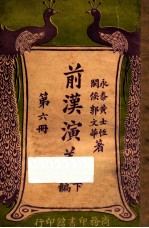 永泰黄士恒
閩侯郭文華著
前漢演義
下編
第六冊
商務印書館印行